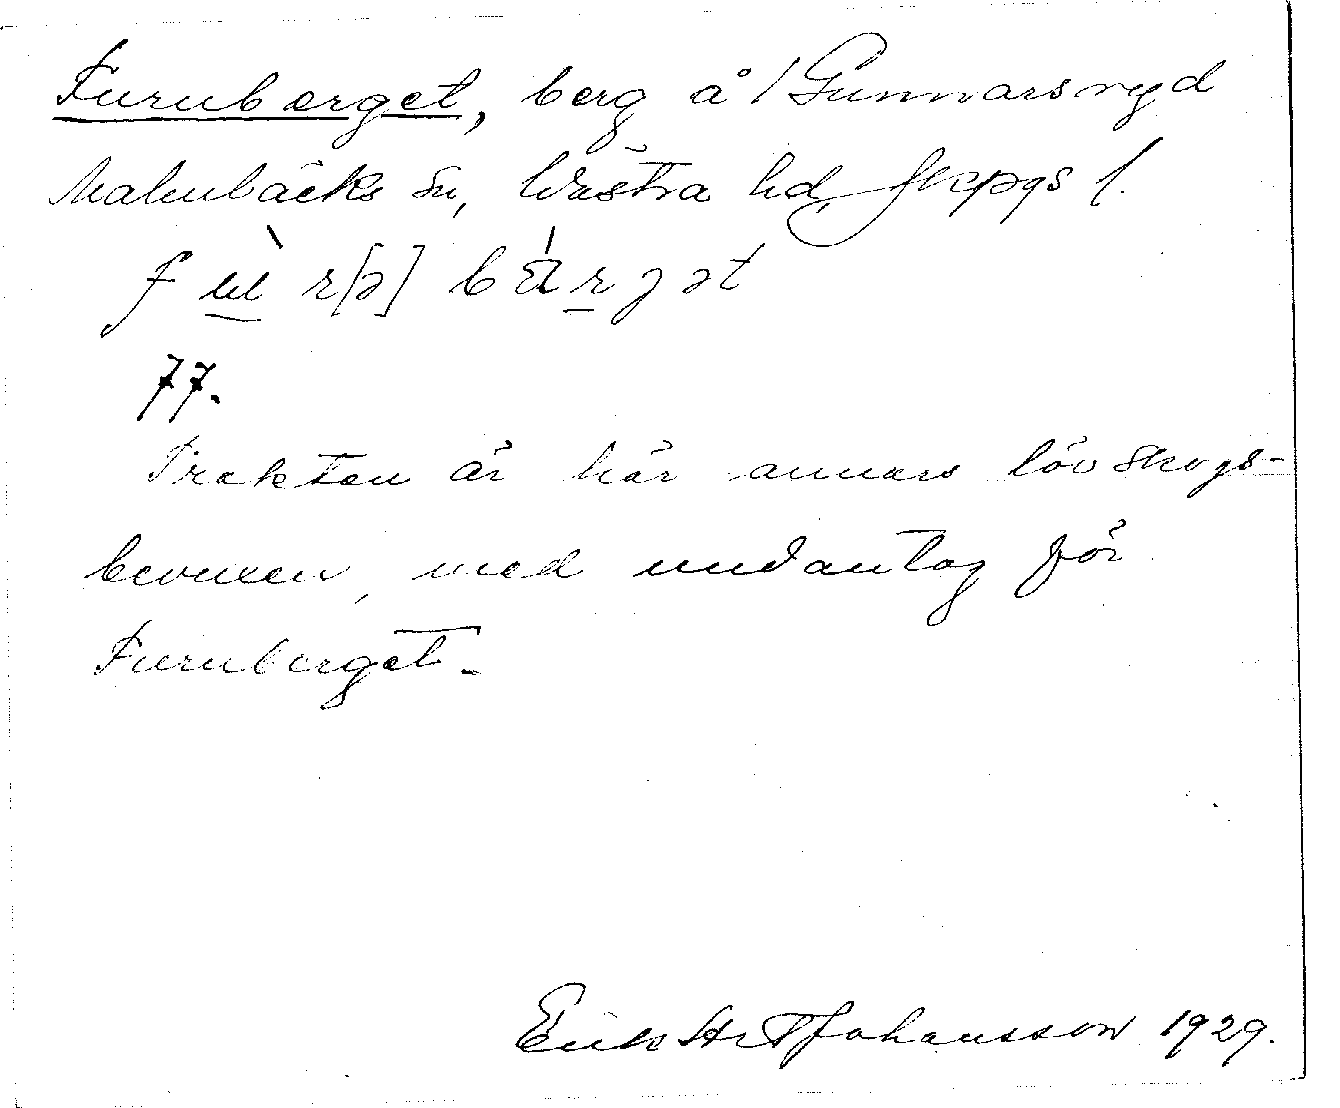 Furuberget, berg å / Gunnarsryd
Malmbäcks sn, Västra hd, Jkpgs l.
77.
Trakten är här annars lövskogs-
bevuxen, med undantag för
Furuberget.
Johansson 1929.